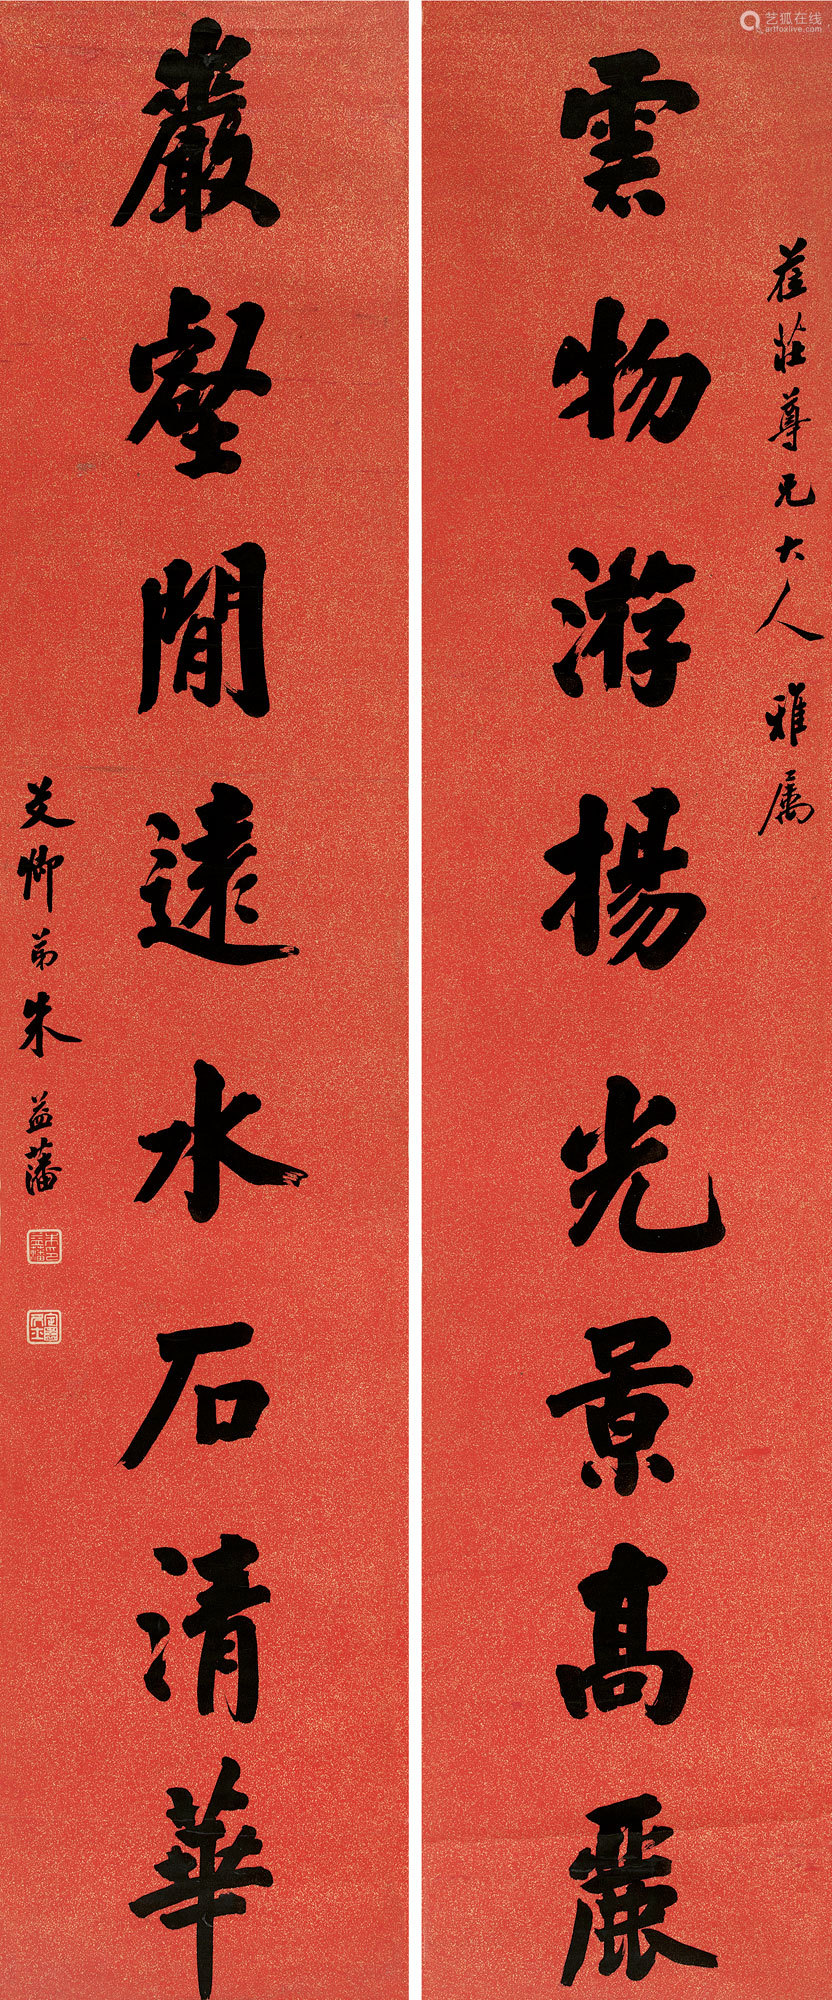 雲物游揚光景高麗
蕿莊尊兄大人雅屬
嚴壑閒遠水石清華
艾卿弟朱益藩
朱益藩印
艺狐在线
artfoxlive.com